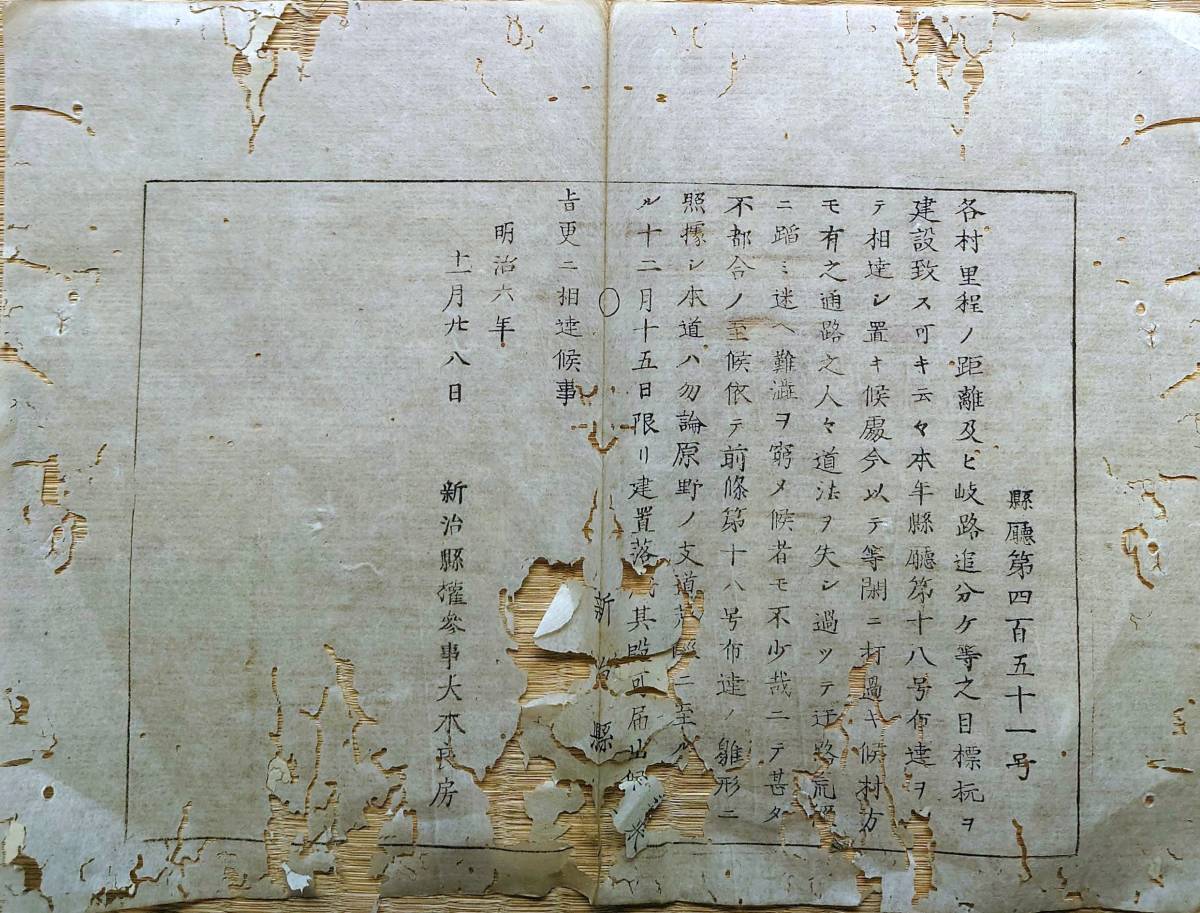 縣廳第四百五十一号
各村里程ノ距離及ヒ岐路追分ケ等之目標杭ヲ
建設致ス可キ云々本年縣廳第十八号布達ヲ
テ相達シ置キ候處今以テ等閑ニ打過キ候村方
モ有之通路之人々道法ヲ失シ過ツテ迂路荒
ニ蹈ミ迷ヘ難澁ヲ窮メ候者モ不少哉ニテ甚タ
不都合ノ至候依テ前條第十八号布達ノ雛形ニ
照據シ本道ハ勿論原野ノ支道ニ至ル
ル十二月十五日限リ建置落其可届出
新治縣
旨更ニ相達候事
明治六年
十一月廿八日
新治縣權參事大木良房